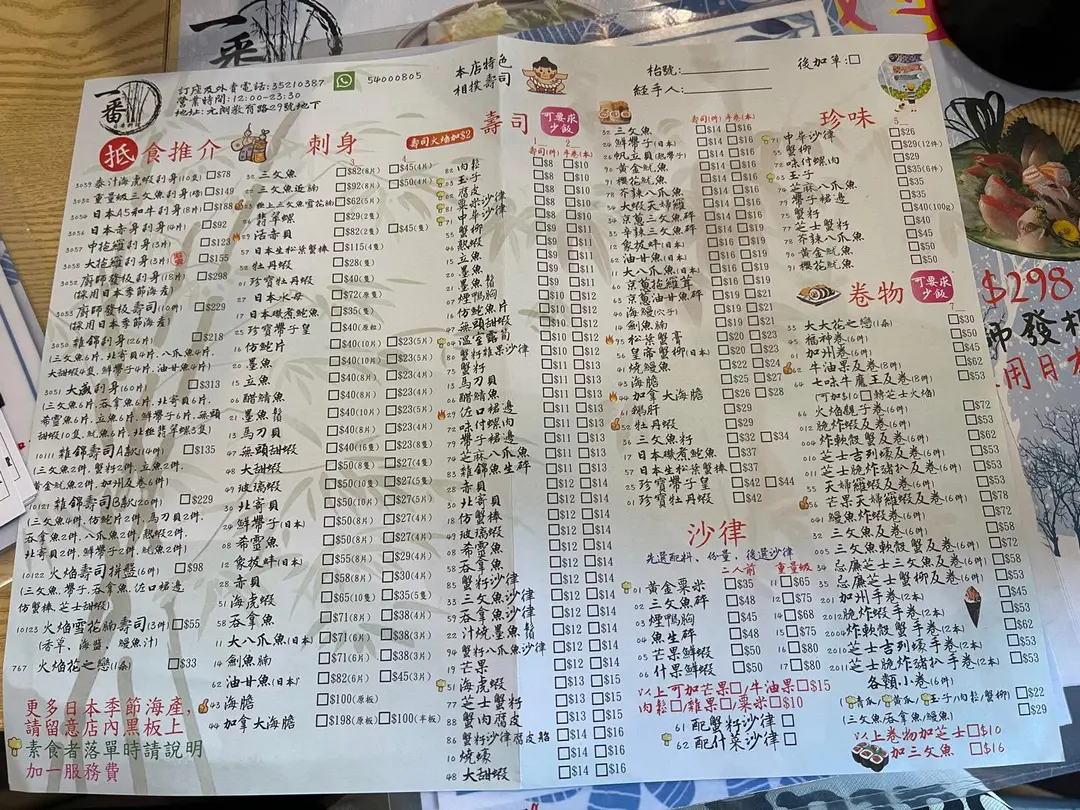 一番
訂座及外賣電話:35210387
54000805
營業時間:12:00-23:30
地址:元朗教育路29號地下
本店特色
相撲壽司
枱號:
經手人:
後加單:□
抵食推介
3049 泰汁海虎蝦刺身(10隻) □$78
3059 重量級三文魚刺身(9塊) □$149
3050 日本A5和牛刺身(8片) □$188
3056 日本赤貝刺身(4片) □$92
3057 中拖羅刺身(3片) □$123
3058 大拖羅刺身(3片) □$155
3052 廚師發板刺身(18片) □$298
(採用日本季節海產)
3053 廚師發板壽司(10件) □$229
(採用日本季節海產)
3050 雜錦刺身(26片) □$218
(三文魚6片,北寄貝4片,八爪魚4片,
大甜蝦4隻,鮮帶子4片,油甘魚4片)
3051 大盛刺身(60片) □$313
(三文魚6片,吞拿魚6片,北寄貝6片,
希靈魚6片,立魚6片,鮮帶子6片,無頭
甜蝦10隻,魷魚6片,北極翡翠螺5隻)
10111 雜錦壽司A款(14件) □$135
(三文魚2件,蟹籽2件,立魚2件,
黃金魷魚2件,加州卷6件)
10121 雜錦壽司B款(20件) □$229
(三文魚4件,仿鮑片2件,馬刀貝2件,
吞拿魚2件,八爪魚2件,熱蝦2件,
北寄貝2件,鮮帶子2件,魷魚2件)
10122 火焰壽司拼盤(6件) □$98
(三文魚,帶子,吞拿魚,佐口裙邊
仿蟹棒,芝士甜蝦)
10123 火焰雪花腩壽司(3件) □$55
(香草,海鹽,鰻魚汁)
767 火焰花之戀(1條) □$33
更多日本季節海產,
請留意店內黑板上
素食者落單時請說明
加一服務費
刺身
三文魚 □$82(8片) □$45(4片)
三文魚近腩 □$92(8片) □$50(4片)
極上三文魚雪花腩 □$62(5片)
翡翠螺 □$29(2隻)
活赤貝 □$82(2隻) □$45(1隻)
57 日本生松葉蟹棒 □$115(4隻)
52 牡丹蝦 □$28(1隻)
01 珍寶牡丹蝦 □$40(1隻)
27 日本水母 □$72(原隻)
17 日本磯煮鮑魚 □$35(1隻)
25 珍寶帶子皇 □$40(原粒)
16 仿鮑片 □$40(10片) □$23(5片)
20 墨魚 □$40(10片) □$23(5片)
15 立魚 □$40(8片) □$23(4片)
06 醋鯖魚 □$40(8片) □$23(4片)
21 墨魚鬚 □$40(10片) □$23(5片)
13 馬刀貝 □$40(8片) □$23(4片)
47 無頭甜蝦 □$40(16隻) □$23(8隻)
48 大甜蝦 □$50(8隻) □$27(4隻)
49 玻璃蝦 □$50(10隻) □$27(5隻)
30 北寄貝 □$50(10片) □$27(5片)
24 鮮帶子(日本) □$50(8片) □$27(4片)
08 希靈魚 □$50(8片) □$27(4片)
12 象拔蚌(日本) □$55(8片) □$29(4片)
28 赤貝 □$58(8片) □$30(4片)
51 海虎蝦 □$65(10隻) □$35(5隻)
59 吞拿魚 □$71(8片) □$38(4片)
11 大八爪魚(日本) □$71(6片) □$38(3片)
14 劍魚腩 □$71(6片) □$38(3片)
62 油甘魚(日本) □$82(6片) □$45(3片)
43 海膽 □$100(原板)
44 加拿大海膽 □$198(原板) □$100(半板)
壽司火焰加$2
壽司
可要求少飯
壽司(件) 手卷(本)
88 肉鬆 □$8 □$10
玉子 □$8 □$10
腐皮 □$8 □$10
粟米沙律 □$8 □$10
中華沙律 □$8 □$10
55 蟹柳 □$8 □$10
46 熱蝦 □$9 □$11
15 立魚 □$9 □$11
20 墨魚 □$9 □$11
21 墨魚鬚 □$9 □$11
07 煙鴨胸 □$10 □$12
16 仿鮑魚片 □$10 □$12
47 無頭甜蝦 □$10 □$12
04 溫室露筍 □$10 □$12
80 蟹籽雜果沙律 □$10 □$12
75 蟹籽 □$11 □$13
13 馬刀貝 □$11 □$13
06 醋鯖魚 □$11 □$13
29 佐口裙邊 □$11 □$13
72 味付螺肉 □$11 □$13
79 帶子裙邊 □$11 □$13
74 芝麻八爪魚 □$11 □$13
84 雜錦魚生碎 □$11 □$13
28 赤貝 □$12 □$14
30 北寄貝 □$12 □$14
18 仿蟹棒 □$12 □$14
49 玻璃蝦 □$12 □$14
08 希靈魚 □$12 □$14
58 吞拿魚 □$12 □$14
85 蟹籽沙律 □$12 □$14
33 三文魚沙律 □$12 □$14
59 吞拿魚沙律 □$12 □$14
22 汁燒墨魚鬚 □$12 □$14
94 蟹籽八爪魚沙律 □$12 □$14
19 芒果 □$13 □$15
51 海虎蝦 □$13 □$15
77 芝士蟹籽 □$13 □$15
88 蟹肉腐皮 □$14 □$16
86 蟹籽沙律腐皮 □$14 □$16
10 燒蠔 □$14 □$16
48 大甜蝦 □$14 □$16
壽司(件) 手卷(本)
32 三文魚 □$14 □$16
24 鮮帶子(日本) □$14 □$16
26 帆立貝(熟帶子) □$14 □$16
90 黃金魷魚 □$14 □$16
91 櫻花魷魚 □$14 □$16
78 芥辣八爪魚 □$14 □$16
50 大蝦天婦羅 □$14 □$16
34 京蔥三文魚碎 □$14 □$16
35 辛辣三文魚碎 □$14 □$16
12 象拔蚌(日本) □$16 □$19
62 油甘魚(日本) □$16 □$19
11 大八爪魚(日本) □$16 □$19
京蔥拖羅茸 □$19 □$21
63 京蔥油甘魚碎 □$19 □$21
40 海鰻(穴子) □$19 □$21
14 劍魚腩 □$19 □$21
95 松葉蟹膏 □$20 □$23
56 皇帝蟹柳(日本) □$20 □$23
41 燒鰻魚 □$22 □$24
43 海膽 □$25 □$27
44 加拿大海膽 □$26 □$28
61 鵝肝 □$29
52 牡丹蝦 □$29
36 三文魚籽 □$32 □$34
17 日本磯煮鮑魚 □$37
57 日本生松葉蟹棒 □$37
25 珍寶帶子皇 □$42 □$44
01 珍寶牡丹蝦 □$42
沙律
先選配料、份量、後選沙律
二人前 重量級
01 黃金粟米 □$35 11 □$65
02 三文魚碎 □$48 12 □$75
03 煙鴨胸 □$45 13 □$68
04 魚生碎 □$48 14 □$75
05 芒果鮮蝦 □$50 15 □$80
06 什果鮮蝦 □$50 16 □$80
17
以上可加芒果□/牛油果□$15
肉鬆□/雜果□/粟米□$10
61 配蟹籽沙律 □
62 配什菜沙律 □
珍味
71 中華沙律 □$26
55 蟹柳 □$29(12件)
72 味付螺肉 □$29
玉子 □$35(6件)
74 芝麻八爪魚 □$35
79 帶子裙邊 □$35
75 蟹籽 □$40(100g)
77 芝士蟹籽 □$40
78 芥辣八爪魚 □$45
90 黃金魷魚 □$50
91 櫻花魷魚 □$50
卷物
可要求少飯
35 大大花之戀(1條) □$30
45 福神卷(6件) □$50
01 加州卷(6件) □$45
62 牛油果反卷(8件) □$62
64 七味牛魔王反卷(8件) □$53
(可加$10□轉芝士火焰)
66 火焰親子卷(6件) □$72
012 脆炸蝦反卷(6件) □$53
004 炸軟殼蟹反卷(6件) □$62
010 芝士吉列蠔反卷(6件) □$53
011 芝士脆炸豬扒反卷(6件) □$53
天婦羅蝦反卷(6件) □$53
56 芒果天婦羅蝦反卷(6件) □$78
041 鰻魚炸蝦卷(6件) □$72
32 三文魚反卷(6件) □$58
005 三文魚軟殼蟹反卷(6件) □$72
34 忌廉芝士三文魚反卷(6件) □$58
35 忌廉芝士蟹柳反卷(6件) □$53
201 加州手卷(2本) □$45
2012 脆炸蝦手卷(2本) □$53
2004 炸軟殼蟹手卷(2本) □$62
2010 芝士吉列蠔手卷(2本) □$53
2011 芝士脆炸豬扒手卷(2本) □$53
各類小卷(6件)
(青瓜/黃瓜/玉子/肉鬆/蟹柳) □$22
(三文魚/吞拿魚/鰻魚) □$29
以上卷物加芝士□$10
加三文魚 □$16
$298